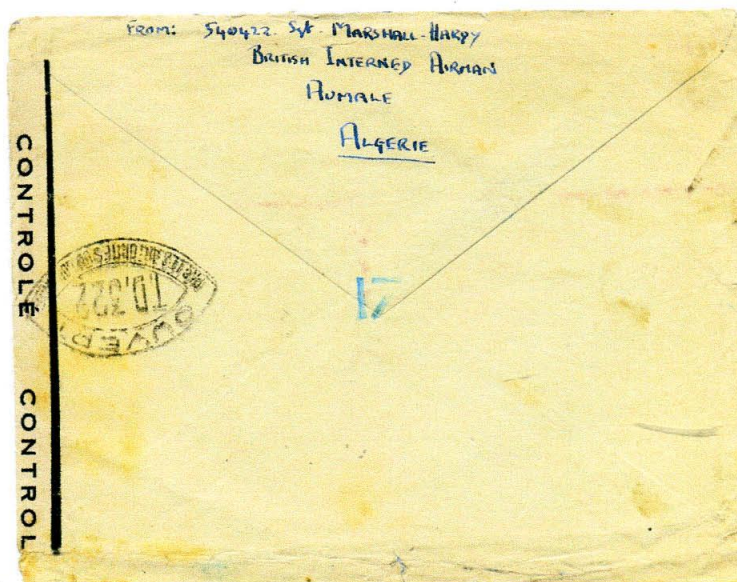 FROM: 540422. Sgt. MARSHALL-HARDY
BRITISH INTERNED AIRMAN
AUMALE
ALGERIE
CONTROLÉ CONTROL
OUVERT
T.D.322
PAR LES AUTORITÉS
17